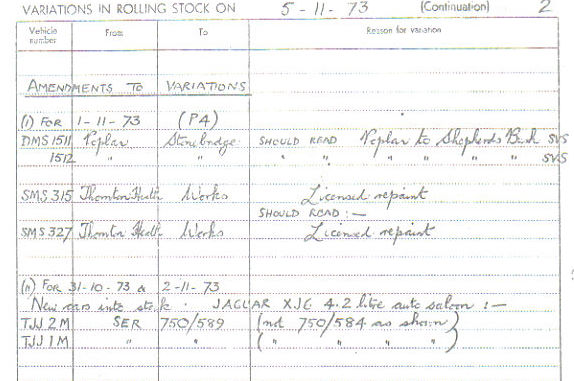 VARIATIONS IN ROLLING STOCK ON 5-11-73 (Continuation) 2
Vehicle number From To Reason for variation
AMENDMENTS TO VARIATIONS
(I) FOR 1-11-73 (P4)
DMS 1511 Poplar Stonebridge SHOULD READ Poplar to Shepherds Bush SVS
1512 " " " " " " " " SVS
SMS 315 Thornton Heath Works Licensed repaint
SHOULD READ :—
SMS 327 Thornton Heath Works Licensed repaint
(II) FOR 31-10-73 & 2-11-73
New cars into stock. JAGUAR XJ6 4.2 litre auto saloon :—
TJJ 2M SER 750/589 (not 750/584 as shown)
TJJ 1M " " ( " " " " )